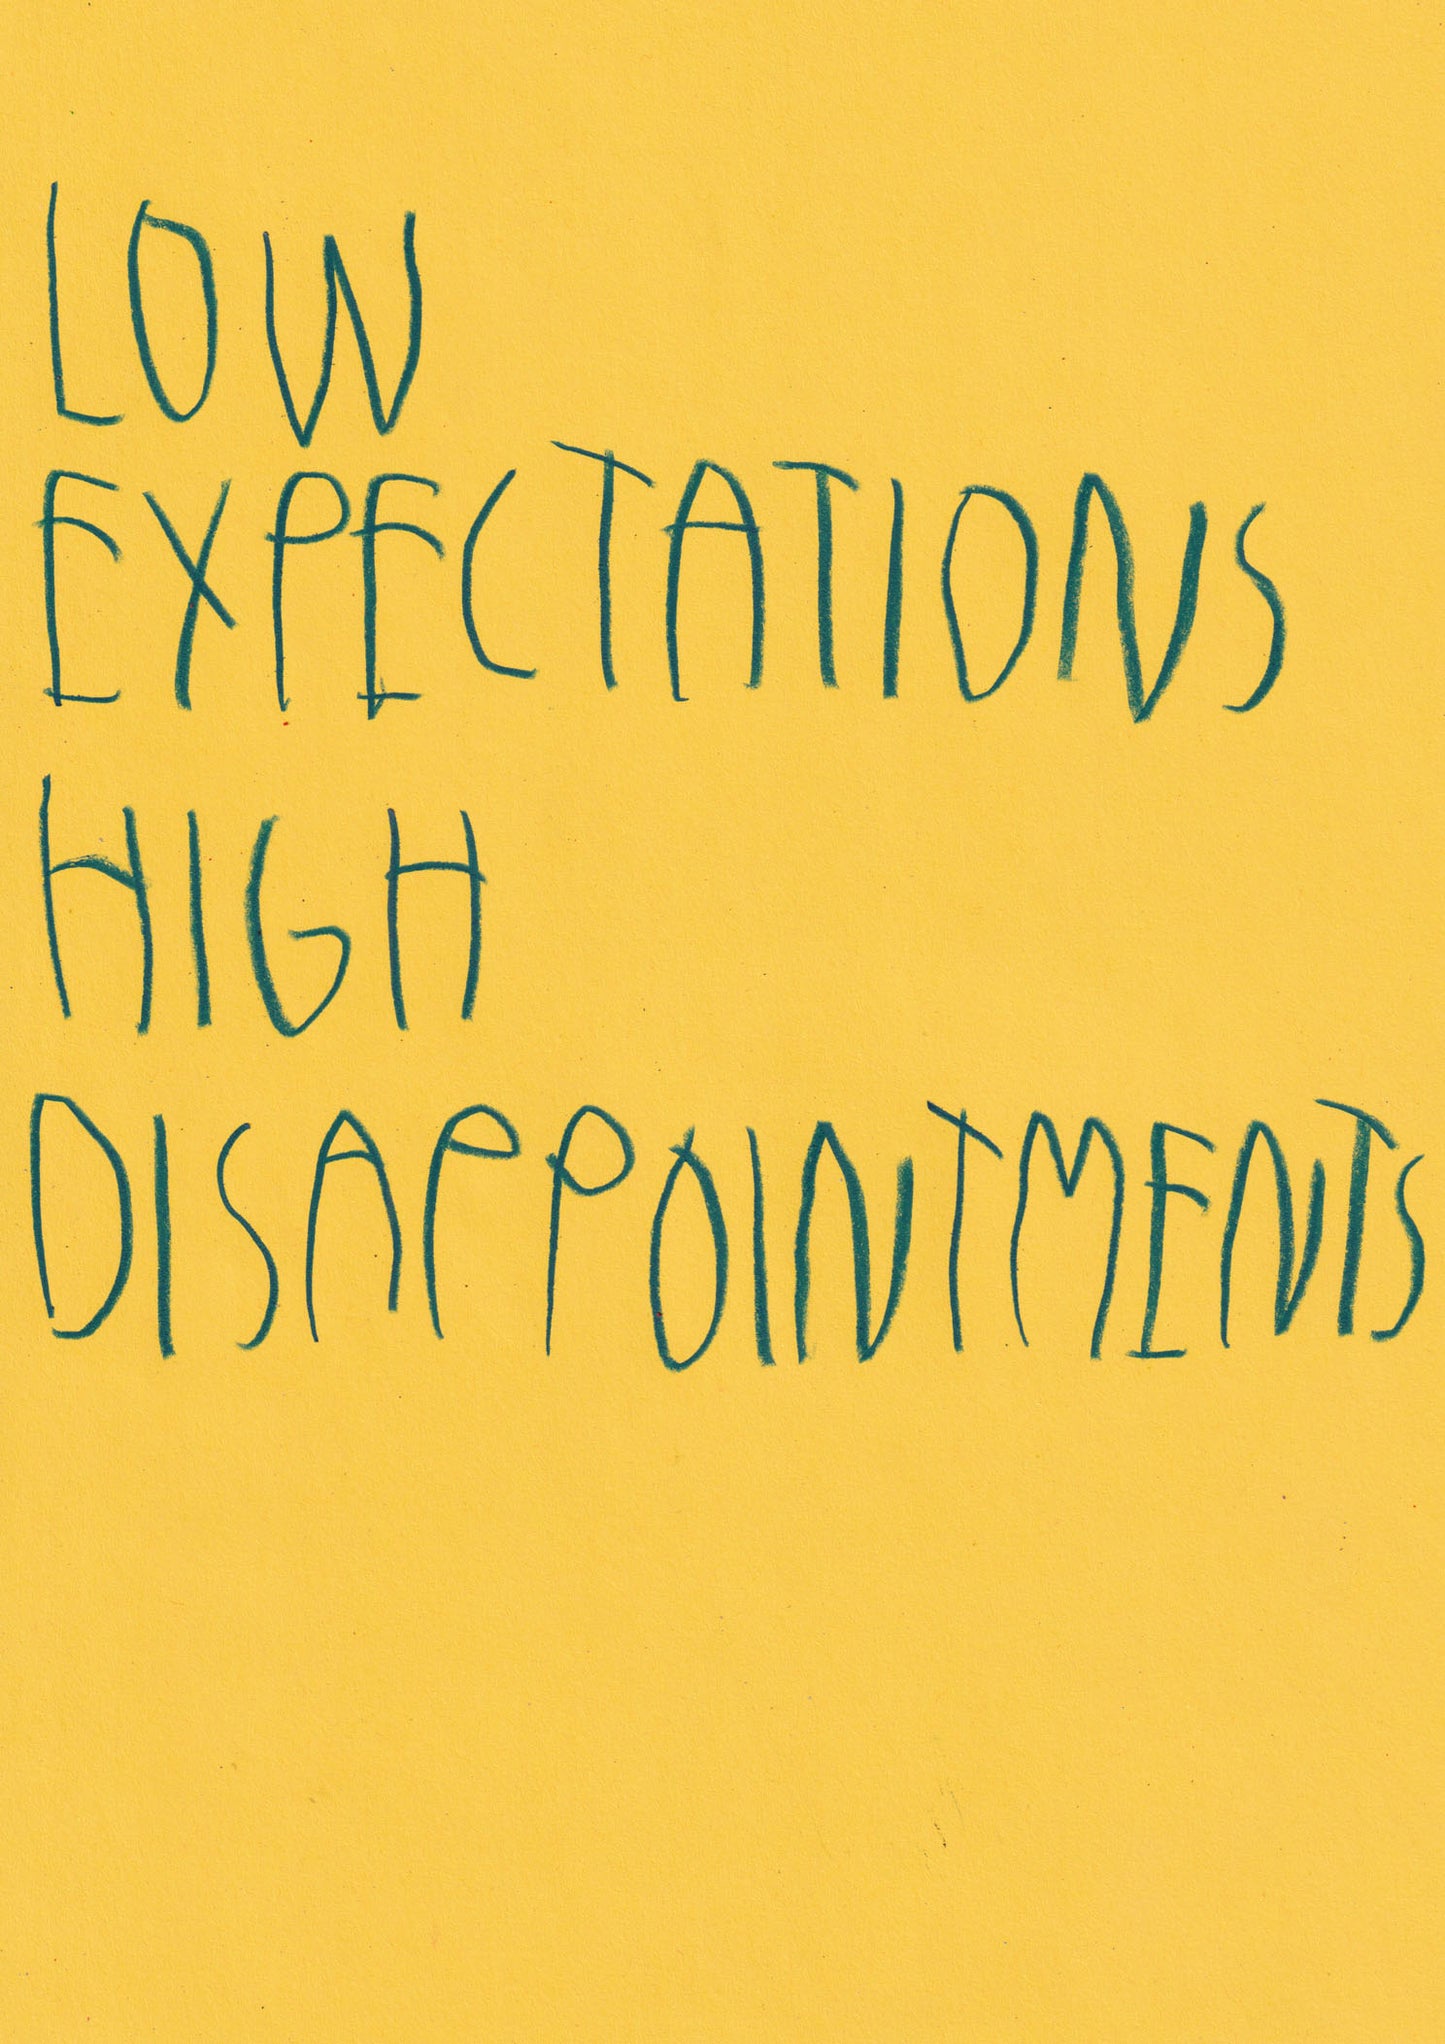 LOW
EXPECTATIONS
HIGH
DISAPPOINTMENTS